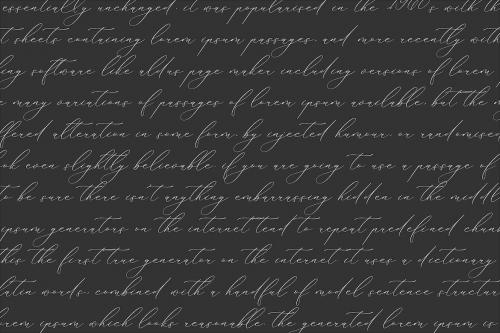 essentially unchanged. it was popularised in the 1960's with th
t sheets containing lorem ipsum passages. and more recently with
ing software like aldus page maker including versions of lorem
e many variations of passages of lorem ipsum available. but the
ffered alteration in some form. by injected humour. or randomised
ok even slightly believable. if you are going to use a passage of
to be sure there isn't anything embarrassing hidden in the middl
ipsum generators on the internet tend to repeat predefined chunk
this the first true generator on the internet. it uses a dictionary
latin words. combined with a handful of model sentence structur
orem ipsum which looks reasonable. the generated lorem ipsum is